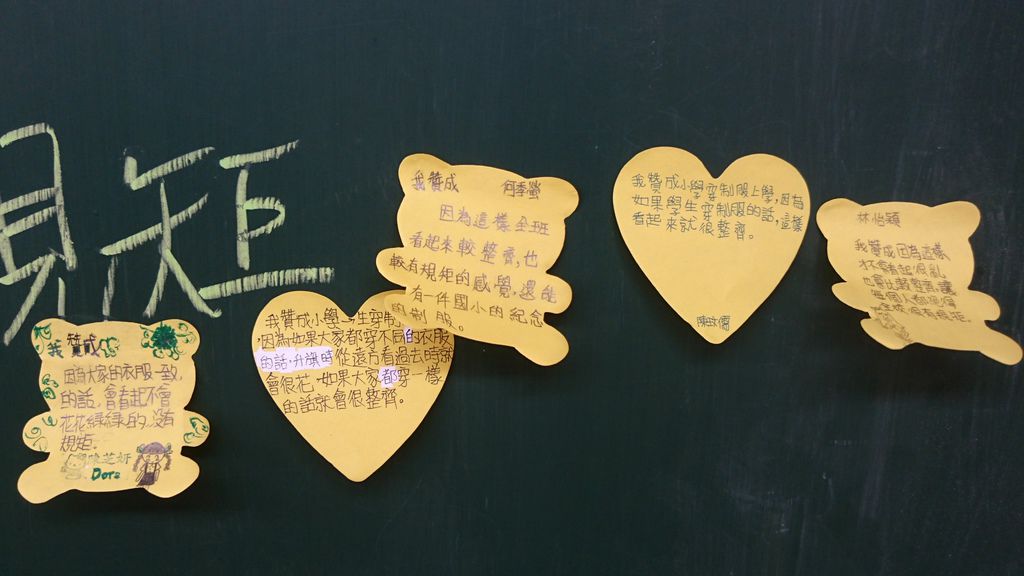 規矩
我贊成
因為大家的衣服一致,
的話,會看起不會
花花綠綠的,沒有
規矩.
Dora
我贊成小學生穿制
因為如果大家都穿不同的衣服
的話,升旗時從遠方看過去時就
會很花,如果大家都穿一樣
的話就會很整齊。
我贊成 何季螢
因為這樣全班
看起來較整齊,也
較有規矩的感覺,還能
有一件國小的紀念
的制服。
我贊成小學穿制服上學,因為
如果學生穿制服的話,這樣
看起來就很整齊。
林怡穎
我贊成因為這樣
才不會看起很亂
也會比較整齊,讓
每個人都覺得